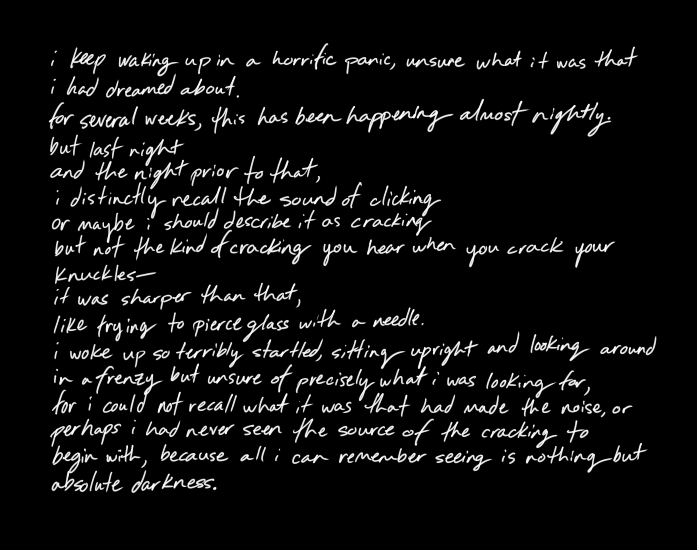 i keep waking up in a horrific panic, unsure what it was that
i had dreamed about.
for several weeks, this has been happening almost nightly.
but last night
and the night prior to that,
i distinctly recall the sound of clicking
or maybe i should describe it as cracking
but not the kind of cracking you hear when you crack your
knuckles—
it was sharper than that,
like trying to pierce glass with a needle.
i woke up so terribly startled, sitting upright and looking around
in a frenzy but unsure of precisely what i was looking for,
for i could not recall what it was that had made the noise, or
perhaps i had never seen the source of the cracking to
begin with, because all i can remember seeing is nothing but
absolute darkness.